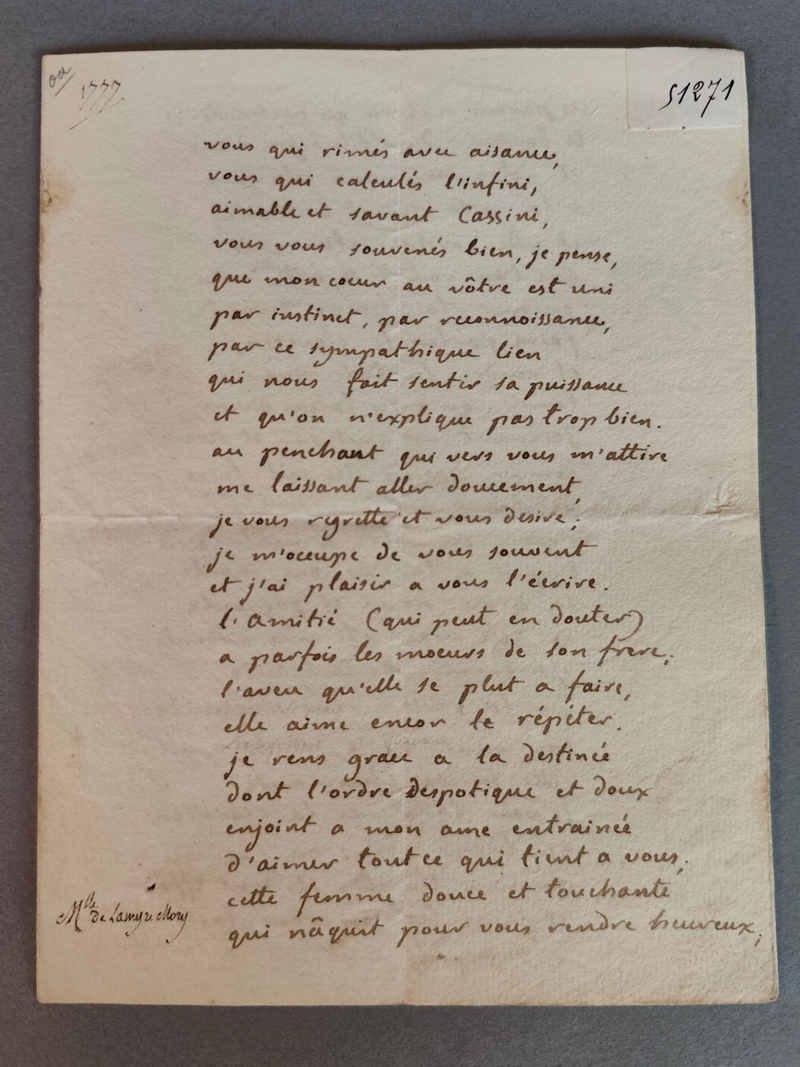 1777
51271
vous qui rimés avec aisance,
vous qui calculés l'infini,
aimable et savant Cassini,
vous vous souvenés bien, je pense,
que mon coeur au vôtre est uni
par instinct, par reconnoissance,
par ce sympathique lien
qui nous fait sentir sa puissance
et qu'on n'explique pas trop bien.
au penchant qui vers vous m'attire
me laissant aller doucement,
je vous regrette et vous desire;
je m'occupe de vous souvent
et j'ai plaisir a vous l'écrire.
l'amitié (qui peut en douter)
a parfois les moeurs de son frere;
l'aveu qu'elle se plut a faire,
elle aime encor le répéter.
je rens grace a la destinée
dont l'ordre despotique et doux
enjoint a mon ame entrainée
d'aimer tout ce qui tient a vous;
cette femme douce et touchante
Mlle de Lamyre Mory
qui nâquit pour vous rendre heureux;